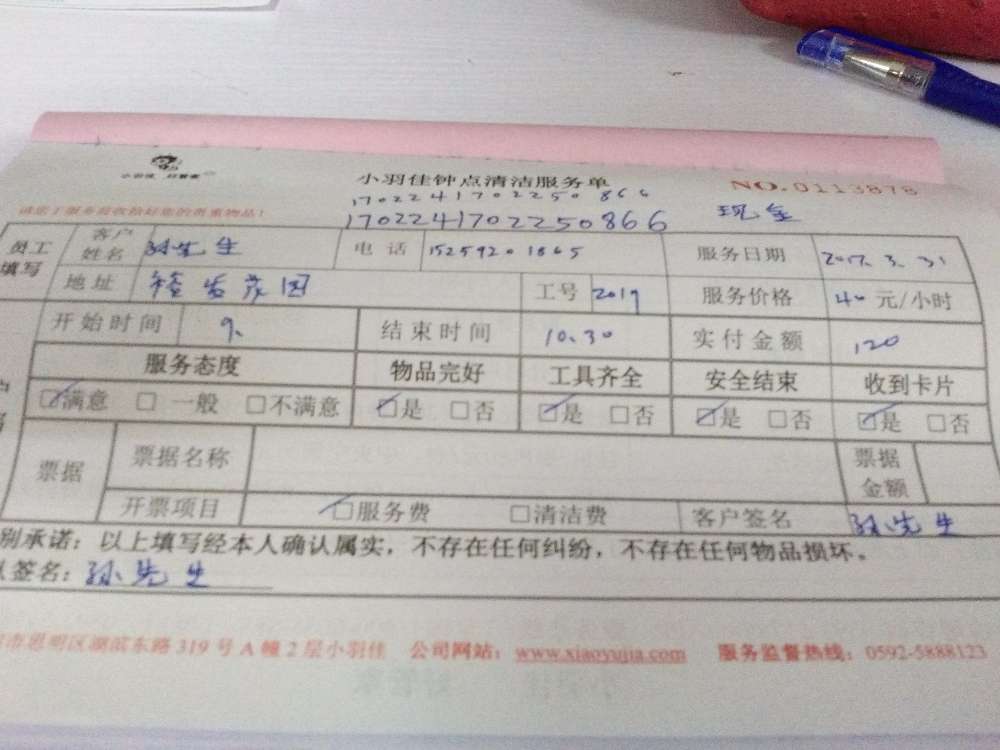 小羽佳 好管家
小羽佳钟点清洁服务单
NO.0113878
1702241702250866
诚恳了服务前收拾好您的贵重物品！
1702241702250866 现金
员工填写 客户姓名 孙先生 电话 15259201865 服务日期 2017.3.31
地址 工号 2019 服务价格 40元/小时
开始时间 9. 结束时间 10.30 实付金额 120
服务态度 物品完好 工具齐全 安全结束 收到卡片
☑满意 □一般 □不满意 ☑是 □否 ☑是 □否 ☑是 □否 ☑是 □否
票据 票据名称 票据金额
开票项目 ☑服务费 □清洁费 客户签名 孙先生
别承诺：以上填写经本人确认属实，不存在任何纠纷，不存在任何物品损坏。
签名：孙先生
市思明区湖滨东路319号A幢2层小羽佳 公司网站：www.xiaoyujia.com 服务监督热线：0592-5888123